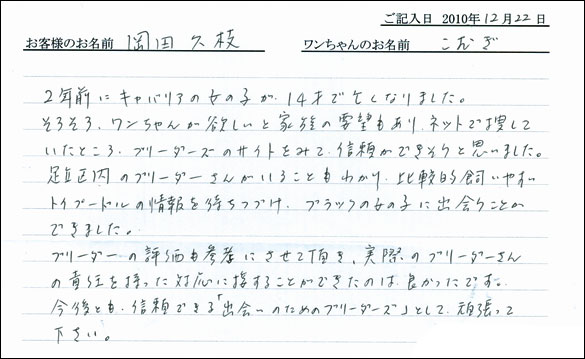 ご記入日 2010年12月22日
お客様のお名前 岡田久枝 ワンちゃんのお名前 こむぎ
2年前にキャバリアの女の子が、14才で亡くなりました。
そろそろ、ワンちゃんが欲しいと家族の要望もあり、ネットで捜して
いたところ、ブリーダーズのサイトをみて、信頼ができそうと思いました。
足立区内のブリーダーさんがいることもわかり、比較的飼いやすい
トイプードルの情報を待ちつづけ、ブラックの女の子に出会うことが
できました。
ブリーダーの評価も参考にさせて頂き、実際のブリーダーさん
の責任を持った対応に接することができたのは、良かったです。
今後とも、信頼できる「出会いのためのブリーダーズ」として、頑張って
下さい。